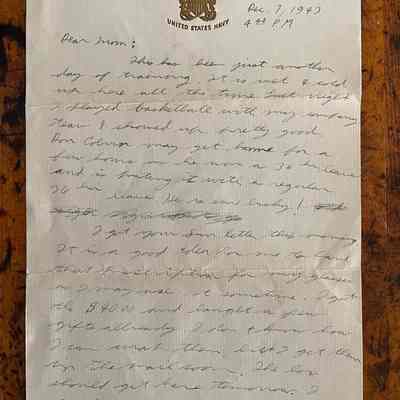 UNITED STATES NAVY
Dec. 7, 1942
4 PM
Dear Mom:
This has been just another
day of training. It is wet & cold
up here all the time. Last night
I played basketball with my company
team I showed up pretty good
Don may get home for a
few hours as he has a 36 hr leave
and is with a regular
36 hr leave. He is sure lucky!
I got your letter this morning
It is a good idea for me to have
that prescription for my glasses
as I may use it sometime. I got
the $40.00 and bought a few
gifts already. I don't know how
I can wrap them but I'll get them
up. The mail soon. The box
should get here tomorrow. I